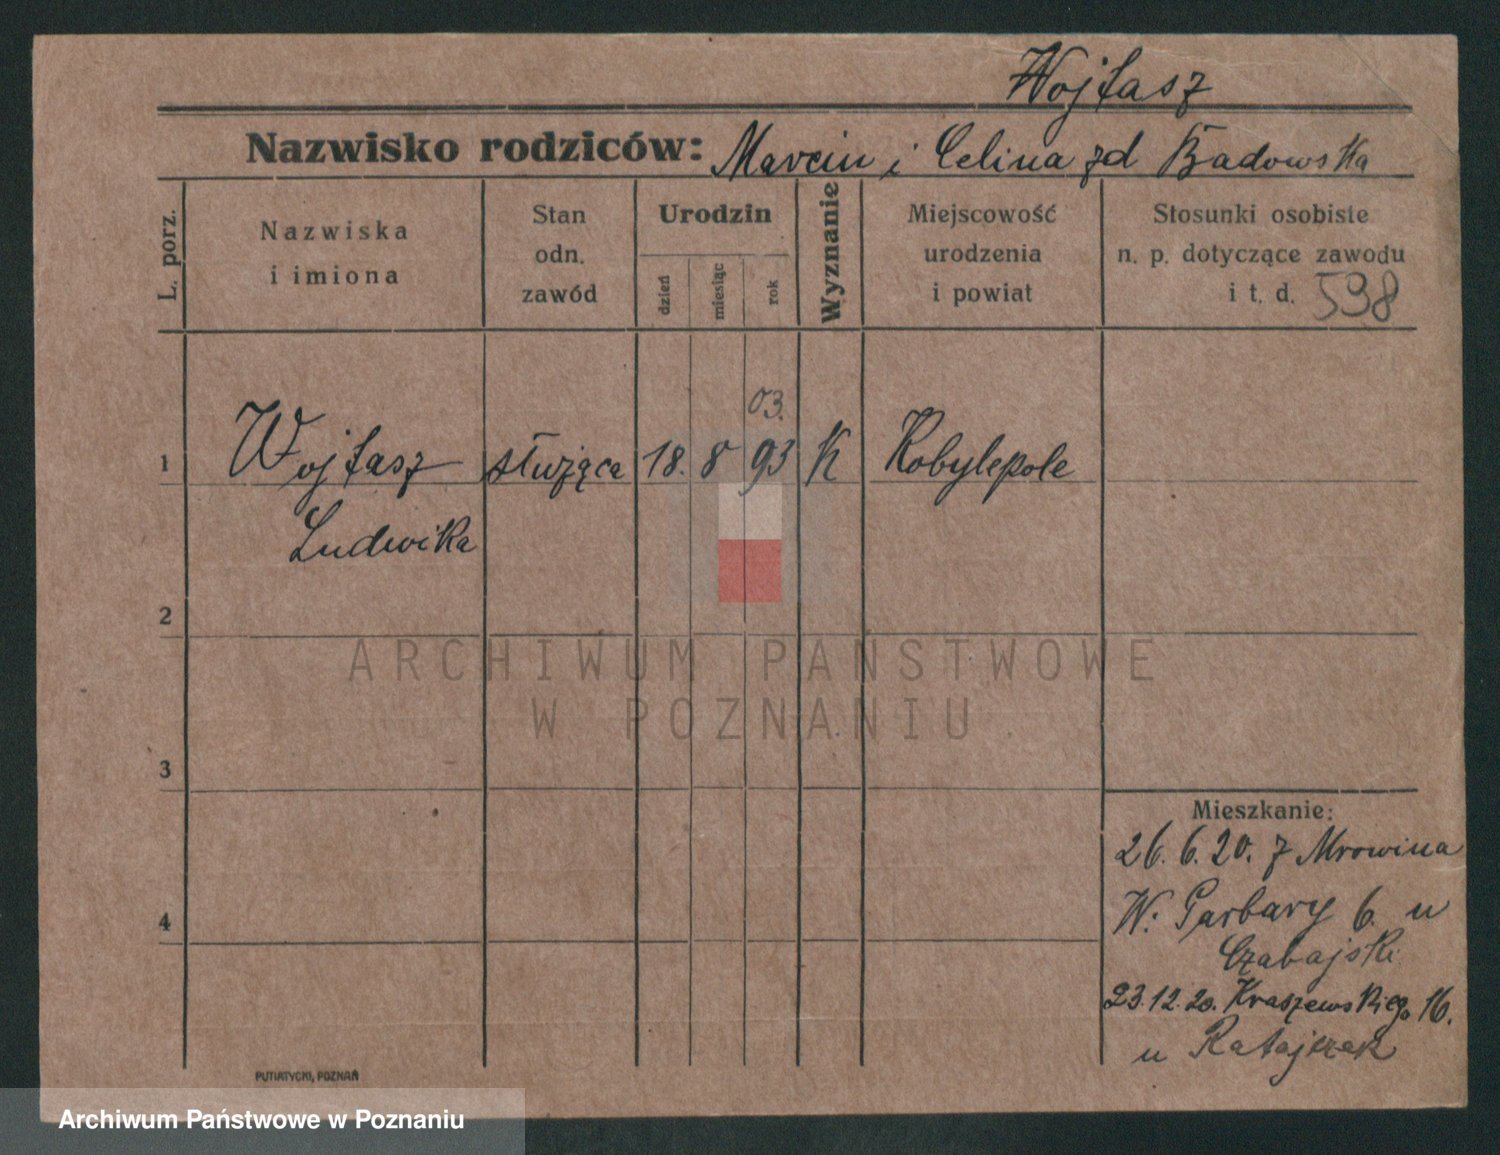 Wojtasz
Nazwisko rodziców: Marcin i Celina zd Badowska
L. porz.
Nazwiska
i imiona
Stan
odn.
zawód
Urodzin
dzień
miesiąc
rok
Wyznanie
Miejscowość
urodzenia
i powiat
Stosunki osobiste
n. p. dotyczące zawodu
i t. d. 598
03.
1 Wojtasz służąca 18. 8 93 K Kobylepole
Ludwika
2
ARCHIWUM PAŃSTWOWE
W POZNANIU
3
Mieszkanie:
26. 6. 20. z Mrowina
4
W. Garbary 6. u
Czabajski
23.12.20. Kraszewskiego 16.
u Ratajczak
PUTIATYCKI, POZNAŃ
Archiwum Państwowe w Poznaniu